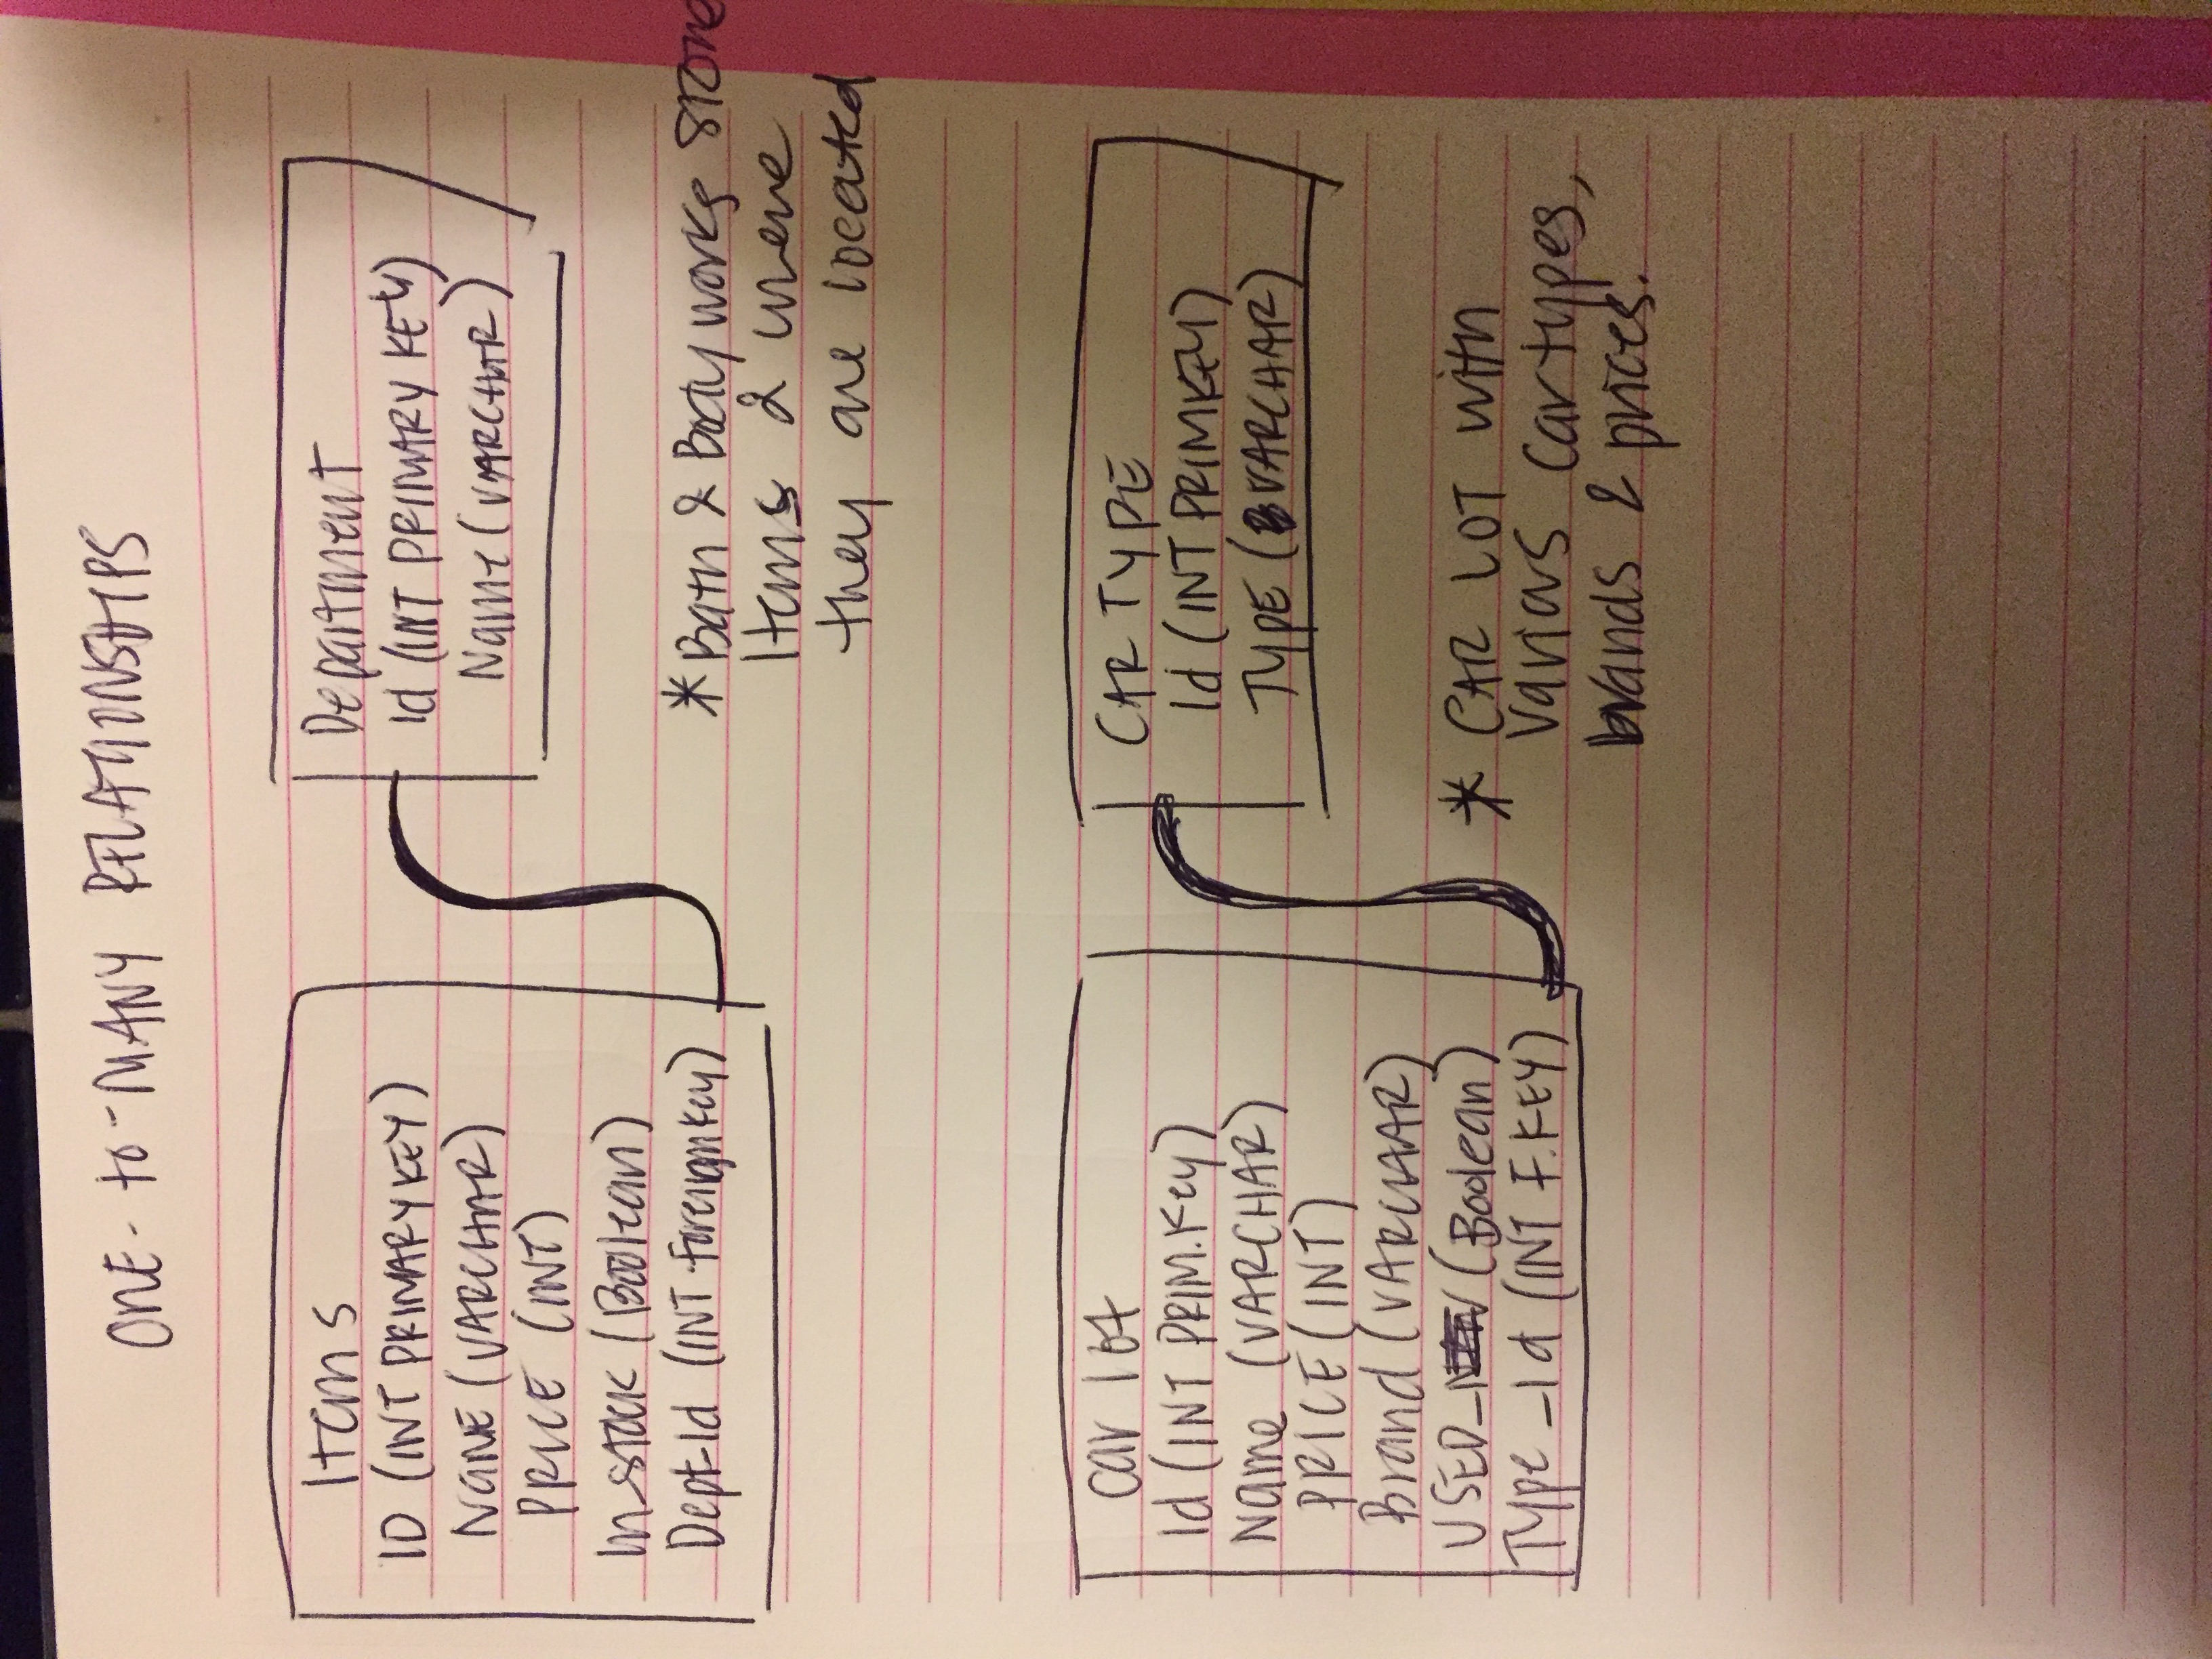 ONE-to-MANY RELATIONSHIPS
Items
ID (INT PRIMARY KEY)
NAME (VARCHAR)
PRICE (INT)
In_stock (Boolean)
Dept_Id (INT Foreign Key)
Department
Id (INT PRIMARY KEY)
Name (VARCHAR)
* Bath & Body works store
Items & where
they are located
Car lot
Id (INT PRIM. Key)
Name (VARCHAR)
PRICE (INT)
Brand (VARCHAR)
USED_ (Boolean)
Type_Id (INT F. KEY)
CAR TYPE
Id (INT PRIM KEY)
TYPE (VARCHAR)
* CAR LOT with
various car types,
brands & prices.